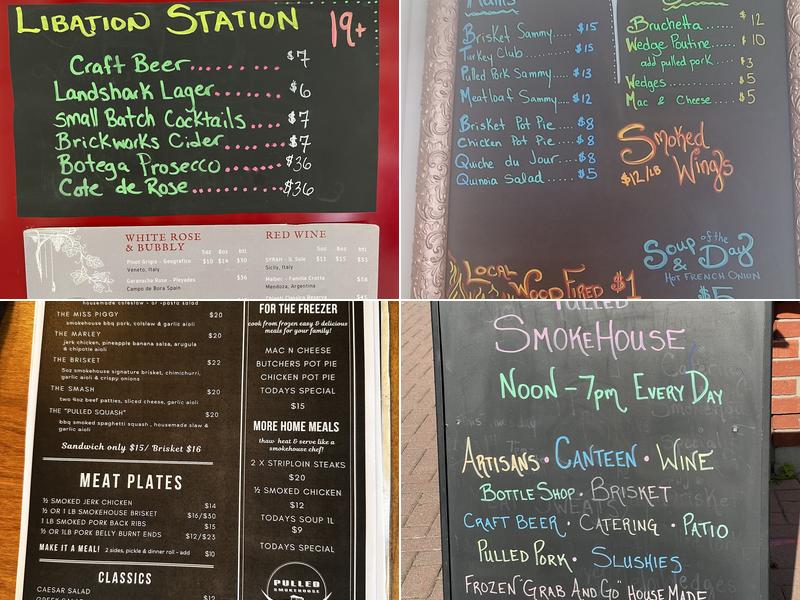 LIBATION STATION
19+
Craft Beer.......... $7
Landshark Lager..... $6
Small Batch Cocktails.... $7
Brickworks Cider...... $7
Botega Prosecco...... $36
Cote de Rose......... $36
WHITE ROSE & BUBBLY
5oz 8oz btl
Pinot Grigio - Geografico $10 $14 $30
Veneto, Italy
Garanacha Rose - Pleyades $36
Campo de Bora Spain
RED WINE
5oz 8oz btl
SYRAH - IL Sole $11 $15 $35
Sicily, Italy
Malbec - Familia Crotta
Mendoza, Argentina
Mains
Brisket Sammy.... $15
Turkey Club.... $15
Pulled Pork Sammy.... $13
Meatloaf Sammy.... $12
Brisket Pot Pie.... $8
Chicken Pot Pie.... $8
Quiche du Jour.... $8
Quinoia Salad.... $5
Bruchetta.... $12
Wedge Poutine.... $10
add pulled pork.... $3
Wedges.... $5
Mac & Cheese.... $5
Smoked Wings
$12/LB
Soup of the Day
&
HOT FRENCH ONION
$5
LOCAL
WOOD FIRED $1
housemade coleslaw - or -pasta salad
THE MISS PIGGY $20
smokehouse bbq pork, colslaw & garlic aioli
THE MARLEY $20
jerk chicken, pineapple banana salsa, arugula
& chipotle aioli
THE BRISKET $22
5oz smokehouse signature brisket, chimichurri,
garlic aioli & crispy onions
THE SMASH $20
two 4oz beef patties, sliced cheese, garlic aioli
THE "PULLED SQUASH" $20
bbq smoked spaghetti squash , housemade slaw &
garlic aioli
Sandwich only $15/ Brisket $16
MEAT PLATES
½ SMOKED JERK CHICKEN $14
½ OR 1 LB SMOKEHOUSE BRISKET $16/$30
1 LB SMOKED PORK BACK RIBS $15
½ OR 1LB PORK BELLY BURNT ENDS $12/$23
MAKE IT A MEAL! 2 sides, pickle & dinner roll - add $10
CLASSICS
CAESAR SALAD $12
FOR THE FREEZER
cook from frozen easy & delicious
meals for your family!
MAC N CHEESE
BUTCHERS POT PIE
CHICKEN POT PIE
TODAYS SPECIAL
$15
MORE HOME MEALS
thaw- heat & serve like a
smokehouse chef!
2 X STRIPLOIN STEAKS
$20
½ SMOKED CHICKEN
$12
TODAYS SOUP 1L
$9
TODAYS SPECIAL
PULLED
SMOKEHOUSE
PULLED
SMOKEHOUSE
NOON - 7pm EVERY DAY
ARTISANS • CANTEEN • WINE
BOTTLE SHOP • BRISKET
CRAFT BEER • CATERING • PATIO
PULLED PORK • SLUSHIES
FROZEN "GRAB AND GO" HOUSE MADE